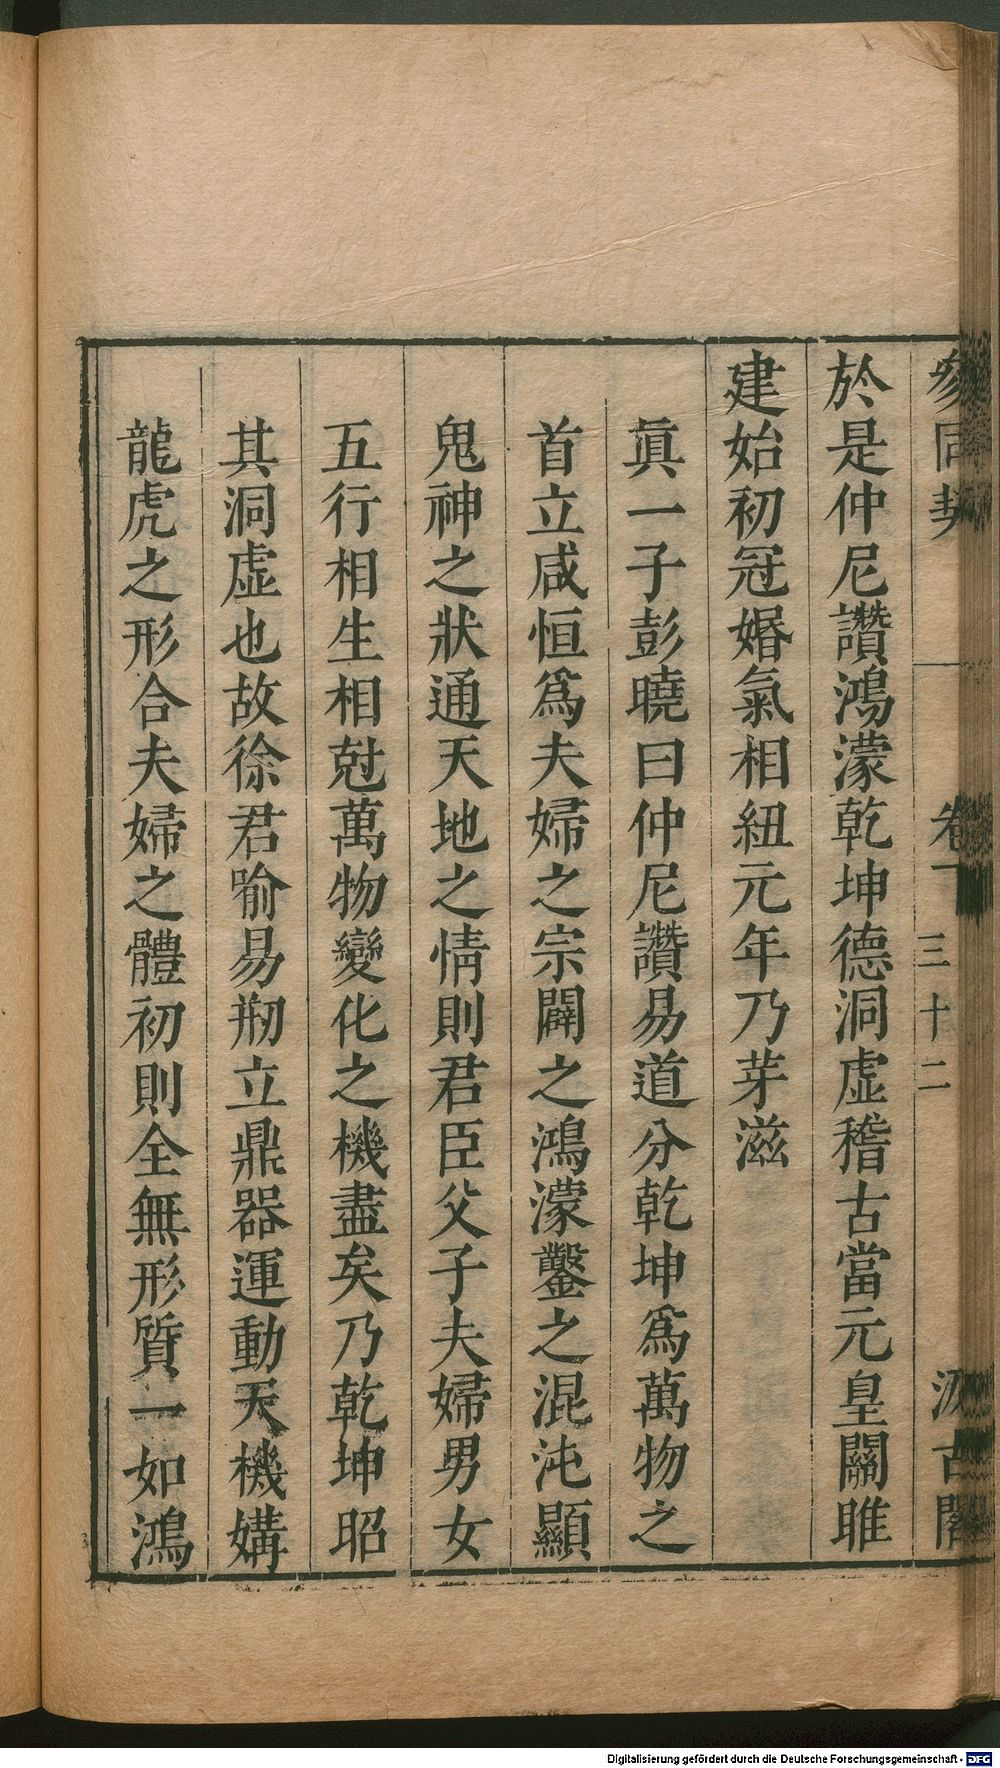 參同契 卷下 三十二 汲古閣
於是仲尼讚鴻濛乾坤德洞虛稽古當元皇關雎
建始初冠婚氣相紐元年乃芽滋
眞一子彭曉曰仲尼讚易道分乾坤爲萬物之
首立咸恒爲夫婦之宗闢之鴻濛鑿之混沌顯
鬼神之狀通天地之情則君臣父子夫婦男女
五行相生相尅萬物變化之機盡矣乃乾坤昭
其洞虛也故徐君喻易剏立鼎器運動天機媾
龍虎之形合夫婦之體初則全無形質一如鴻
Digitalisierung gefördert durch die Deutsche Forschungsgemeinschaft - DFG